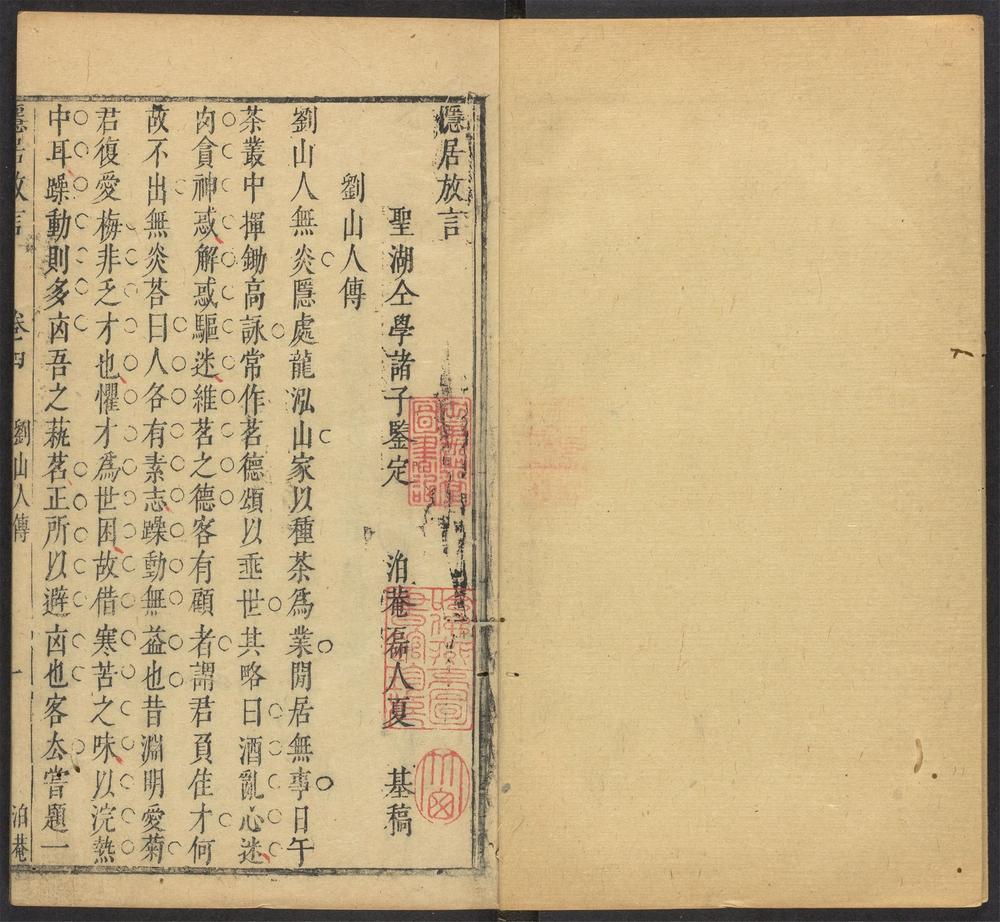 隱居放言
聖湖仝學諸子鑒定　泊菴磊人夏　基稿
劉山人傳
劉山人無炎隱處龍泓山家以種茶爲業閒居無事日午
茶叢中揮鋤高詠常作茗德頌以垂世其略曰酒亂心迷
肉貪神惑解惑驅迷維茗之德客有顧者謂君負佳才何
故不出無炎荅曰人各有素志躁動無益也昔淵明愛菊
君復愛梅非乏才也懼才爲世困故借寒苦之味以浣熱
中耳躁動則多凶吾之蓺茗正所以避凶也客去嘗題一
隱居放言　卷四　劉山人傳　一　泊菴